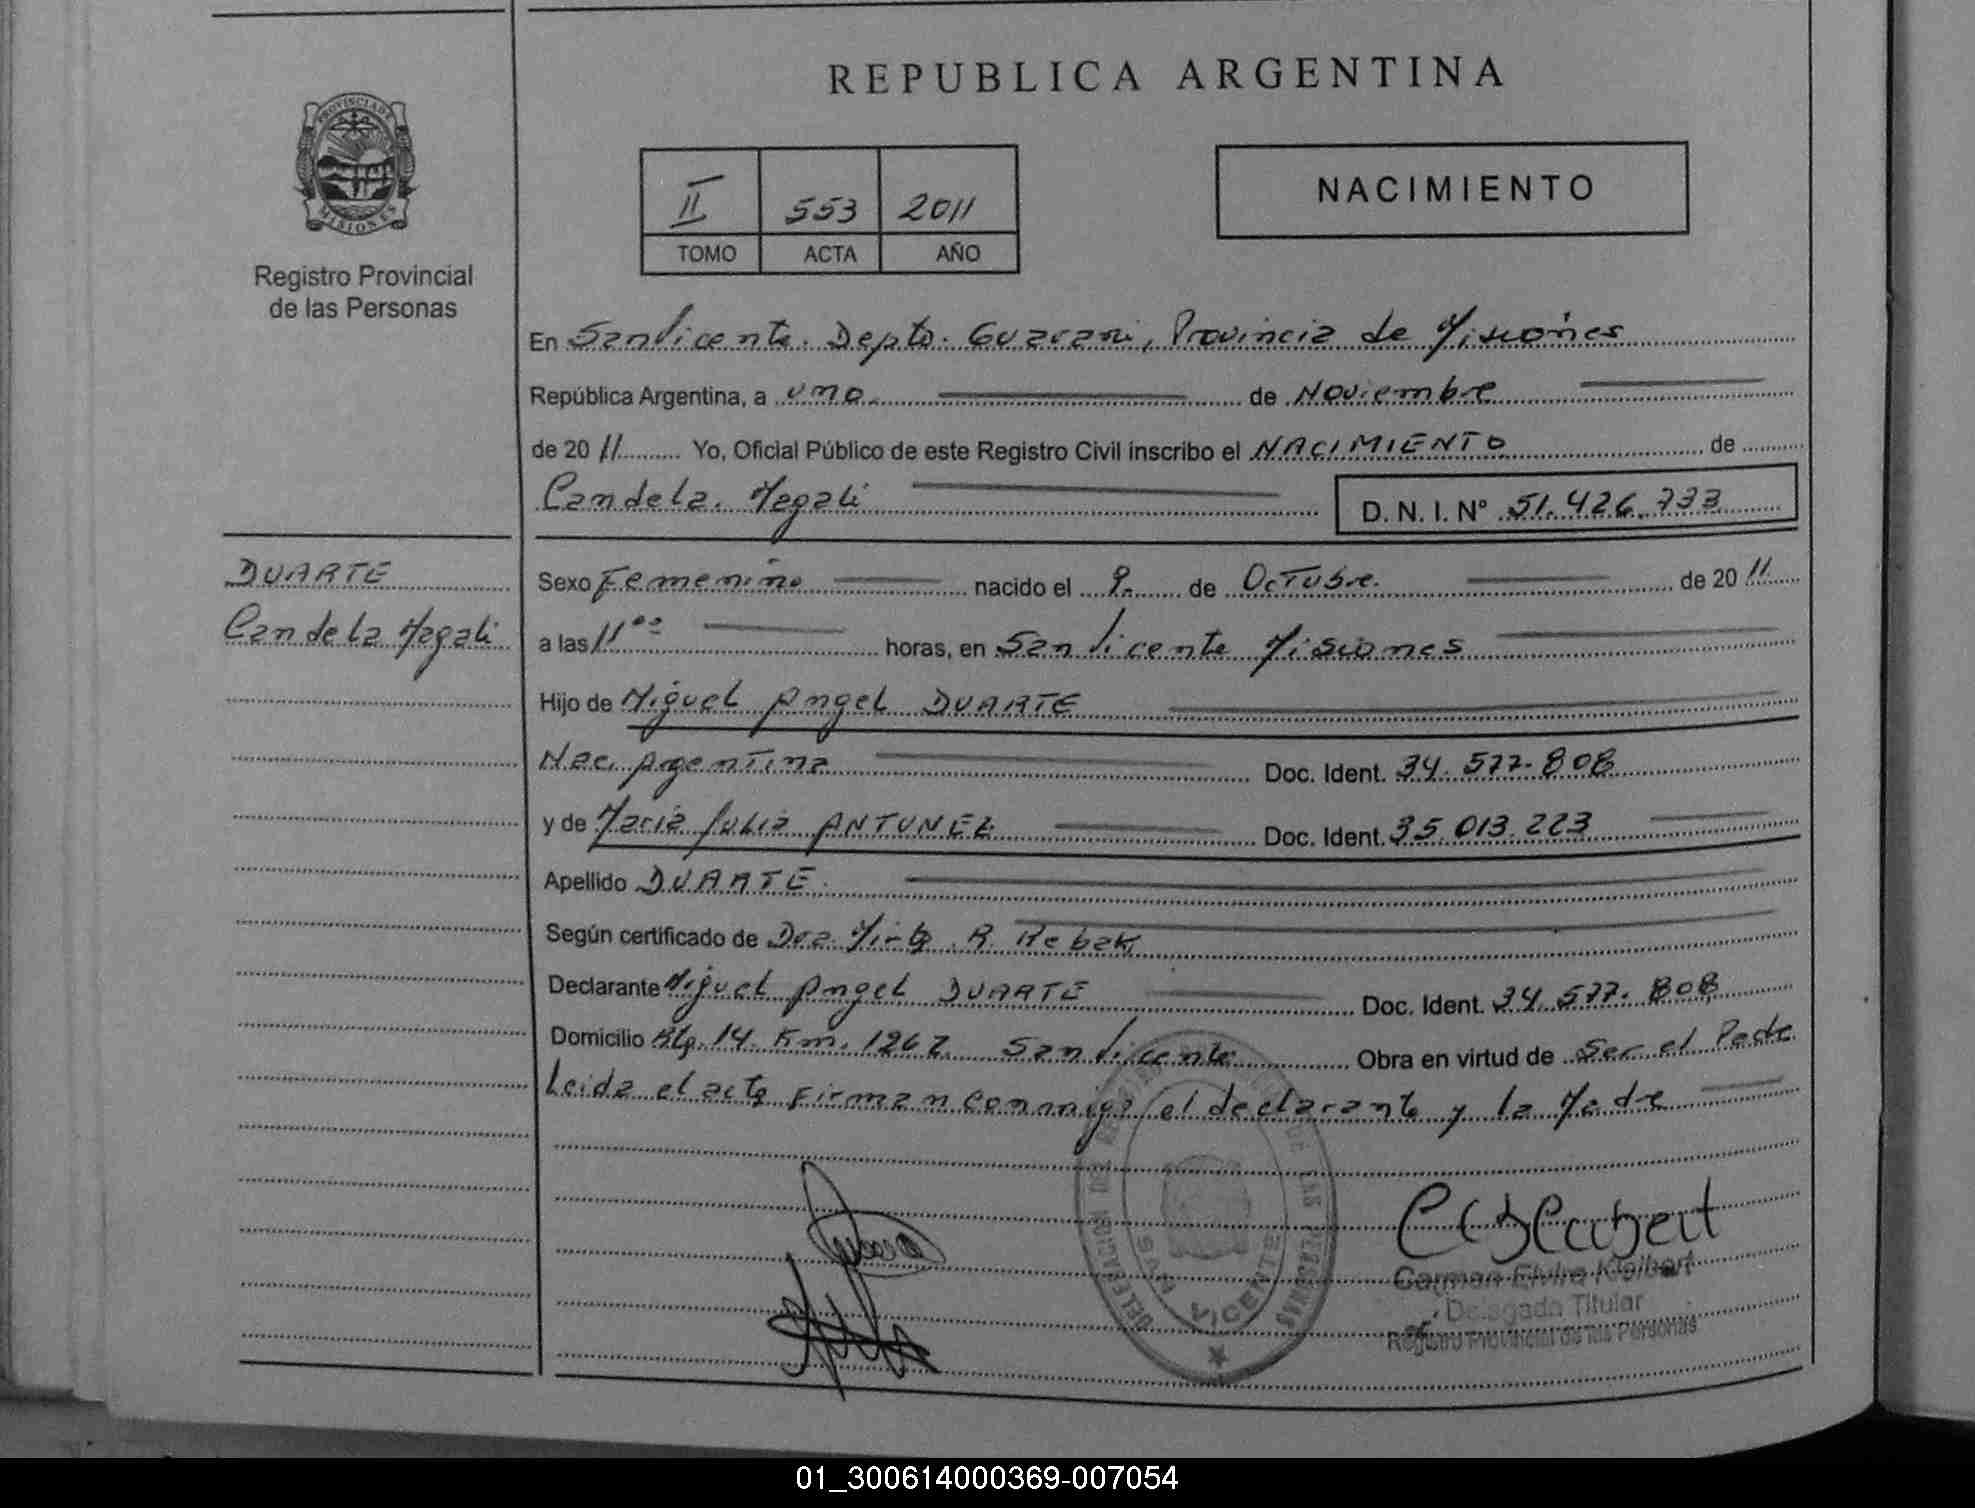 REPUBLICA ARGENTINA
PROVINCIA DE MISIONES
Registro Provincial
de las Personas
II 553 2011
TOMO ACTA AÑO
NACIMIENTO
En San Vicente. Depto. Guarani, Provincia de Misiones
República Argentina, a uno de Noviembre
de 2011 Yo, Oficial Público de este Registro Civil inscribo el NACIMIENTO de
Candela Magali D. N. I. Nº 51.426.733
DUARTE
Candela Magali
Sexo Femenino nacido el 9 de Octubre de 2011
a las 11ºº horas, en San Vicente Misiones
Hijo de Miguel Angel DUARTE
Nac. Argentina Doc. Ident. 34.577.808
y de Maria Julia ANTUNEZ Doc. Ident. 35.013.223
Apellido DUARTE
Según certificado de Dra. Mirta R. Rebak
Declarante Miguel Angel DUARTE Doc. Ident. 34.577.808
Domicilio Km. 1267 San Vicente Obra en virtud de Ser el Padre
Leida el acta Firman conmigo el declarante y la Madre
DELEGACION DE DE LAS PERSONAS
SAN VICENTE
Carmen Elvira Kleibert
Delegada Titular
Registro Provincial de las Personas
01_300614000369-007054